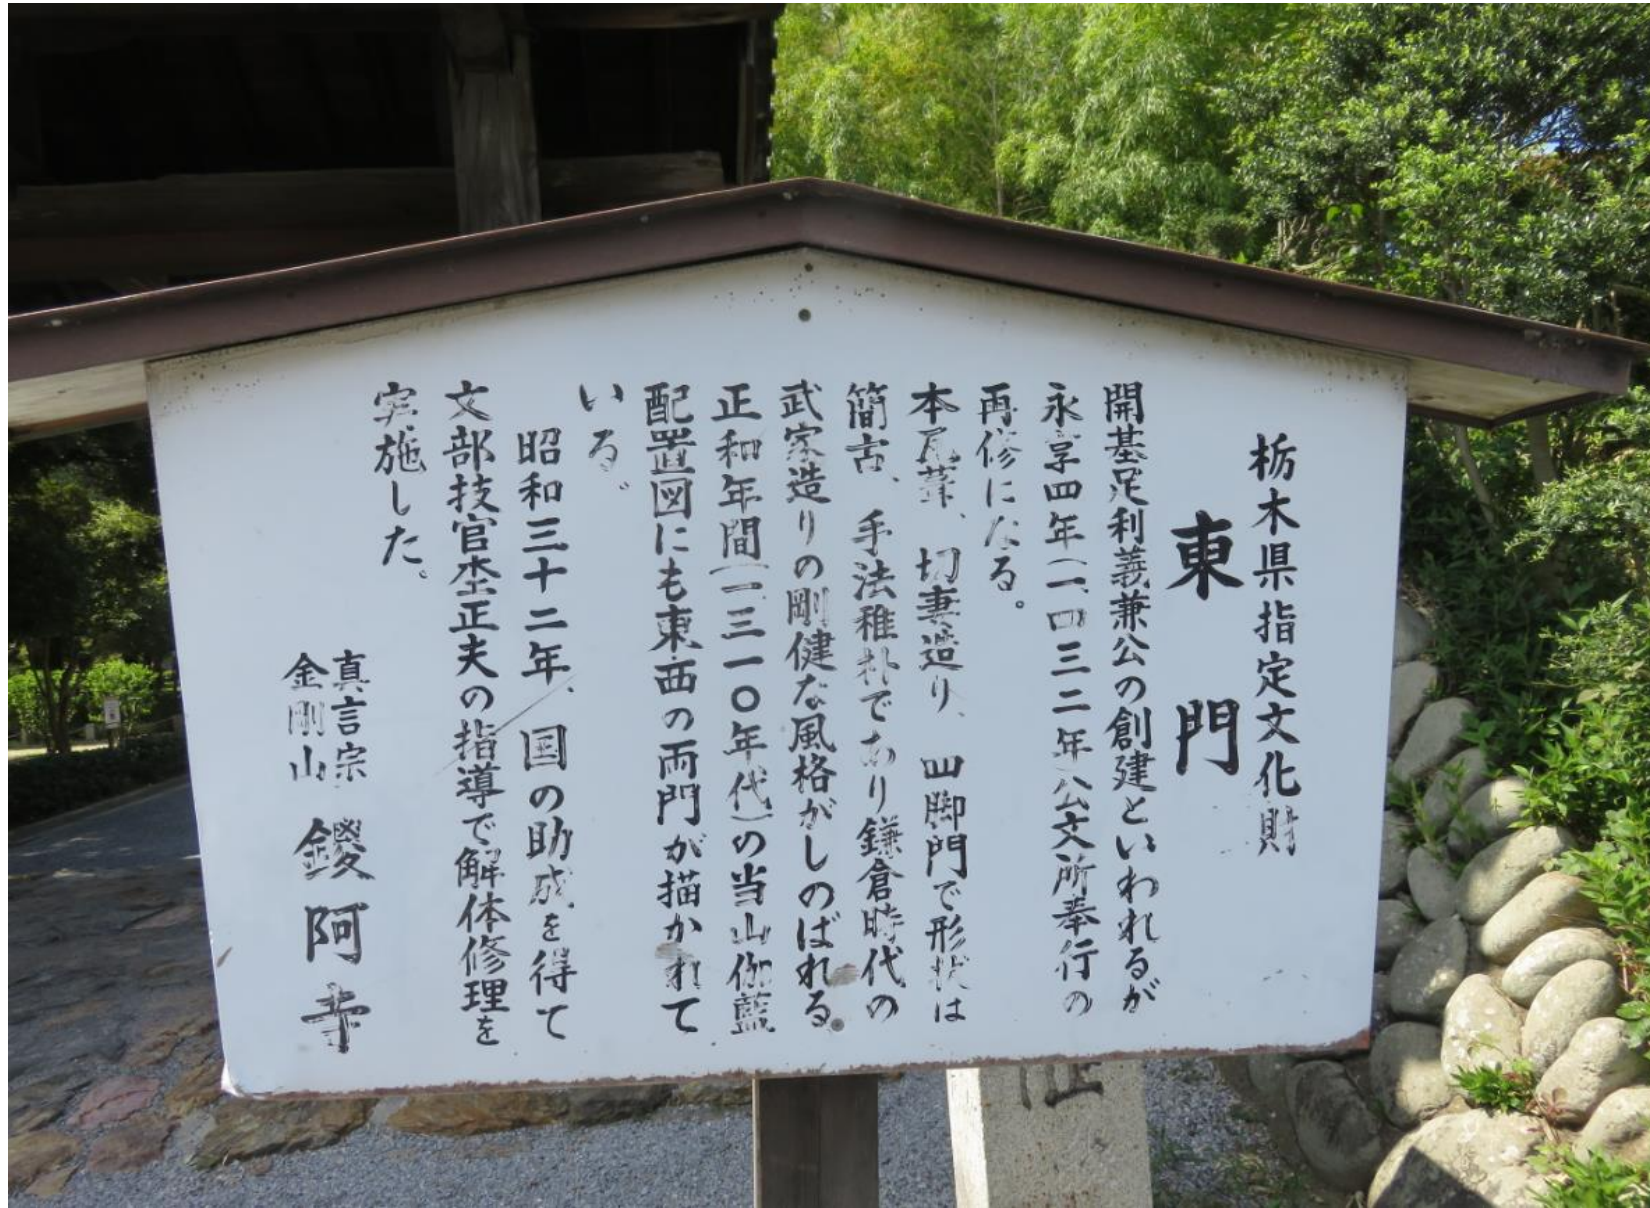 栃木県指定文化財
東門
開基足利義兼公の創建といわれるが
永享四年(一四三二年)公文所奉行の
再修になる。
本瓦葺、切妻造り、四脚門で形状は
簡古、手法稚朴であり鎌倉時代の
武家造りの剛健な風格がしのばれる
正和年間(一三一〇年代)の当山伽藍
配置図にも東西の両門が描かれて
いる。
昭和三十二年、国の助成を得て
文部技官杢正夫の指導で解体修理を
実施した。
真言宗
金剛山
鑁阿寺